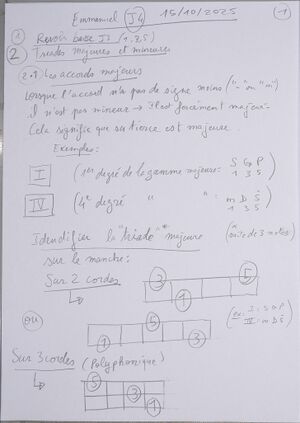 Emmanuel J4 15/10/2025 -1
1 Revoir base J3 (1, 3, 5)
2 Triades majeures et mineures
2.1 Les accords majeurs
Lorsque l'accord n'a pas de signe moins ("-" ou "m")
il n'est pas mineur → Il est forcément majeur.
Cela signifie que sa tierce est majeure.
Exemples:
I (1er degré de la gamme majeure: S G P
1 3 5
IV (4e degré " " : m D Ṡ
1 3 5
Identifier la "triade" majeure
(* suite de 3 notes)
sur le manche:
Sur 2 cordes
3 5
1
ou
5
1 3
(ex: I: S G P
IV: m D Ṡ)
Sur 3 cordes (Polyphonique)
5
3
1